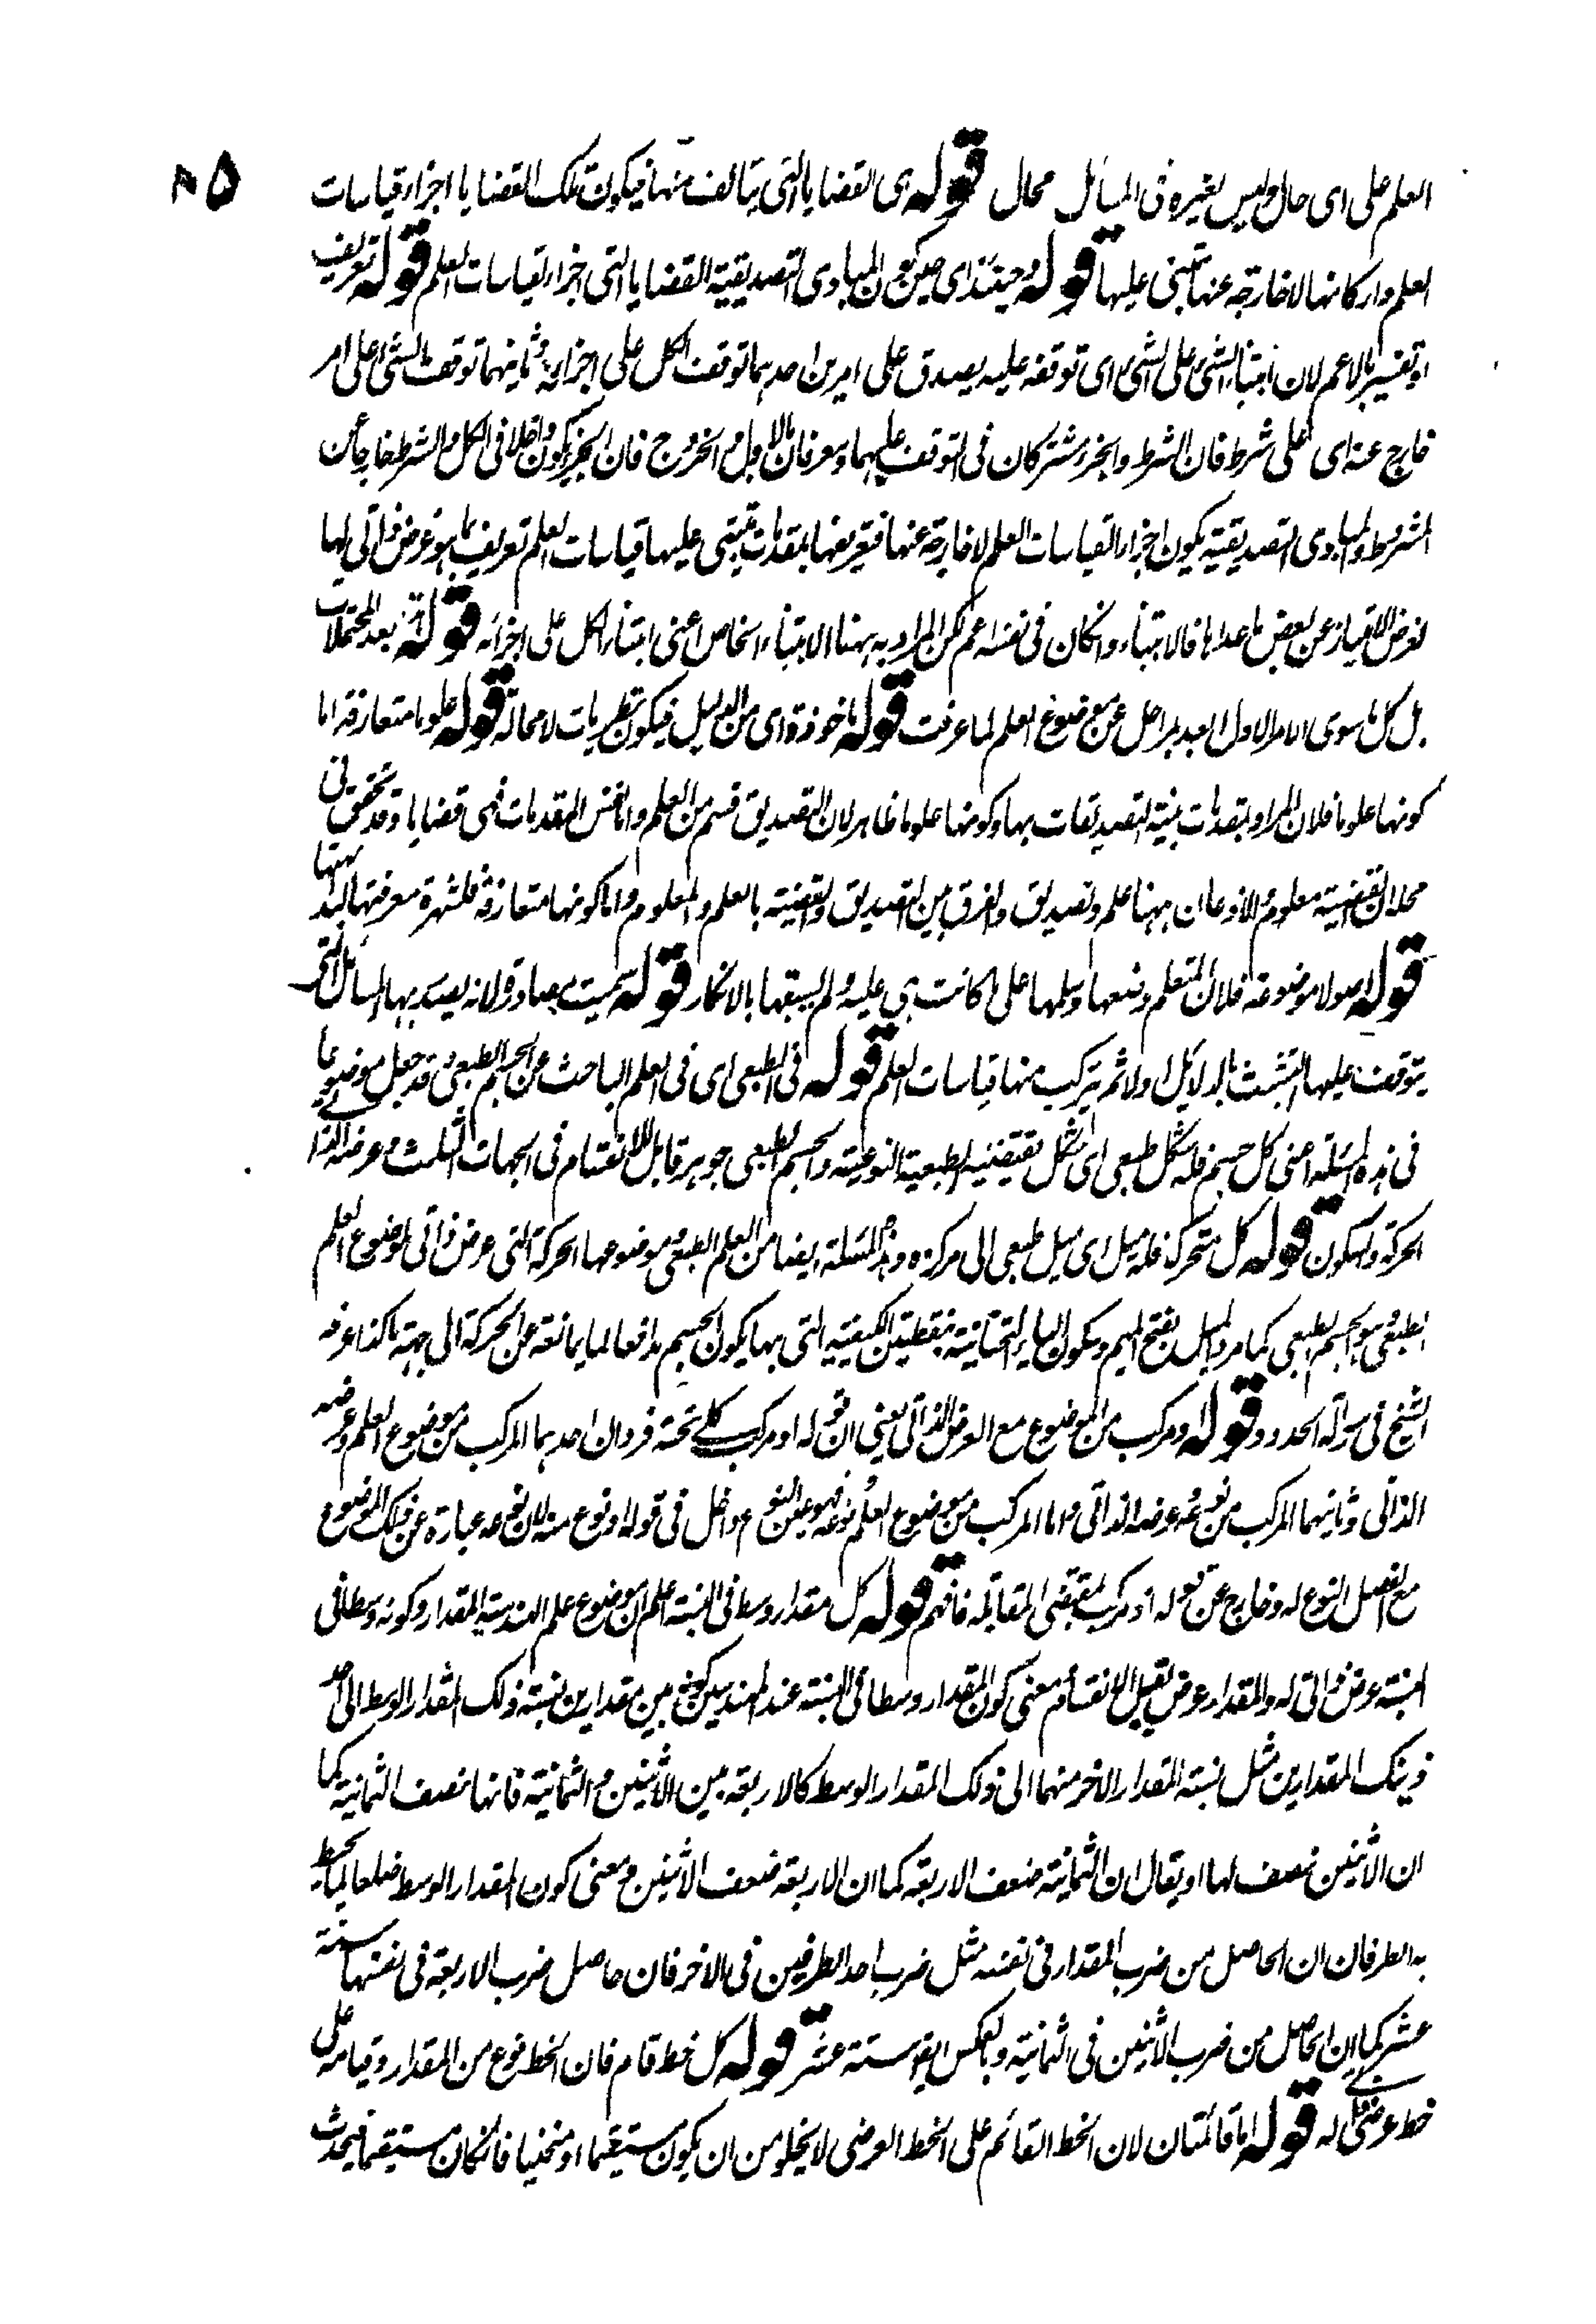 ٨٥
العلم على اى حال وليس لغيره فى المسائل مجال قوله هى القضايا التى يتالف منها فيكون تلك القضايا اجزاء قياسات
العلم واركانها لا خارجة عنها تبتنى عليها قوله وحينئذ اى حين كون المبادى التصديقية القضايا التى اجزاء قياسات العلم قوله تعريف
او تفسير بالاعم لان ابتناء الشئ على الشئ اى توقفه عليه يصدق على امرين احدهما توقف الكل على اجزائه وثانيهما توقف الشئ على امر
خارج عنه اى على شرط فان الشرط والجزء مشتركان فى التوقف عليهما ومفترقان بالدخول والخروج فان الجزء يكون داخلا فى الكل والشرط خارجا عن
المشروط والمبادى التصديقية يكون اجزاء القياسات العلم لا خارجة عنها فتعريفها بمقدمات تبتنى عليها قياسات العلم تعريف بما هو عرض ذاتى لها
لغرض الامتياز عن بعض ما عداها فالابتناء وانكان فى نفسه اعم لكن المراد به ههنا الابتناء الخاص اعنى ابتناء الكل على اجزائه قوله بعد المحتملات
بل كل ما سوى الامر الاول ابعد بمراحل عن موضوع العلم لما عرفت قوله ماخوذة اى من الدليل فيكون نظريات لا محالة قوله علوما متعارفة اما
كونها علوما فلان المراد بمقدمات بينة التصديقات بها وكونها علوما ظاهر لان التصديق قسم من العلم واما نفس المقدمات فهى قضايا وقد تحقق فى
محله ان القضية معلوم والاذعان بهنا علم وتصديق والفرق بين التصديق والقضية بالعلم والمعلوم واما كونها متعارفة فلشهرة معرفتها لبداهتها
قوله اصولا موضوعة فلان المتعلم وضعها وسلمها على ما كانت هى عليه ولم يسبقها بالانكار قوله سميت مصادرة لانه يصدر بها المسائل التى
يتوقف عليها التشبث بالدلائل اولا ثم يتركب منها قياسات العلم قوله فى الطبعى اى فى العلم الباحث عن الجسم الطبعى قد جعل موضوعا
فى هذه المسئلة اعنى كل جسم فله شكل طبعى اى شكل يقتضيه الطبعية النوعية والجسم الطبعى جوهر قابل للانقسام فى الجهات الثلث وعرضه الذاتى
الحركة والسكون قوله كل متحرك فله ميل اى ميل طبعى الى مركزه وهذه المسئلة ايضا من العلم الطبعى وموضوعها الحركة التى عرض ذاتى لموضوع العلم
الطبعى وهو الجسم الطبعى كما مر والميل بفتح الميم وسكون الياء التحتانية بنقطتين الكيفية التى بها يكون الجسم مدافعا لما يمانعه عن الحركة الى جهة ما كذا عرفه
الشيخ فى رسالة الحدود قوله او مركب من الموضوع مع العرض الذاتى يعنى ان قوله او مركب كلى تحته فردان احدهما المركب من موضوع العلم وعرضه
الذاتى وثانيهما المركب من نوعه وعرضه الذاتى واما المركب من موضوع العلم ونوعه فهو عين النوع وداخل فى قوله او نوع منه لان نوعه عبارة عن ذلك الموضوع
مع الفصل النوع له وخارج عن قوله او مركب بمقتضى المقابلة فافهم قوله كل مقدار وسط فى النسبة اعلم ان موضوع علم الهندسة المقدار وكونه وسطا فى
النسبة عرض ذاتى له والمقدار عرض يقبل الانقسام ومعنى كون المقدار وسطا فى النسبة عند المهندسين كونه بين مقدارين نسبة ذلك المقدار الوسط الى احد
ذينك المقدارين مثل نسبة المقدار الاخر منهما الى ذلك المقدار الوسط كالاربعة بين الاثنين والثمانية فانها نصف الثمانية كما
ان الاثنين نصف لها او يقال ان الثمانية ضعف الاربعة كما ان الاربعة ضعف الاثنين ومعنى كون المقدار الوسط ضلعا لما يحيط
به الطرفان ان الحاصل من ضرب المقدار فى نفسه مثل ضرب احد الطرفين فى الاخر فان حاصل ضرب الاربعة فى نفسها ستة
عشر كما ان الحاصل من ضرب الاثنين فى الثمانية وبالعكس ايضا ستة عشر قوله كل خط قام فان الخط نوع من المقدار وقيامه على
خط عرضى له قوله اما قائمتان لان الخط القائم على الخط العرضى لا يخلو من ان يكون مستقيما او منحنيا فانكان مستقيما فيحدث